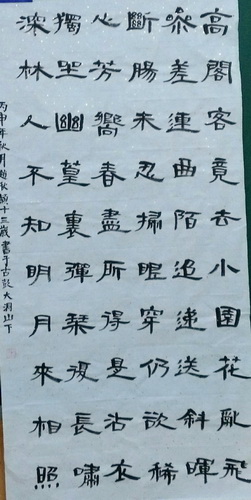 高閣客竟去小園花亂飛
參差連曲陌迢遞送斜暉
斷腸未忍掃眼穿仍欲稀
心芳嚮春盡所得是沾衣
獨坐幽篁裏彈琴復長嘯
深林人不知明月來相照
丙申年秋月十三歲書于古大洞山下